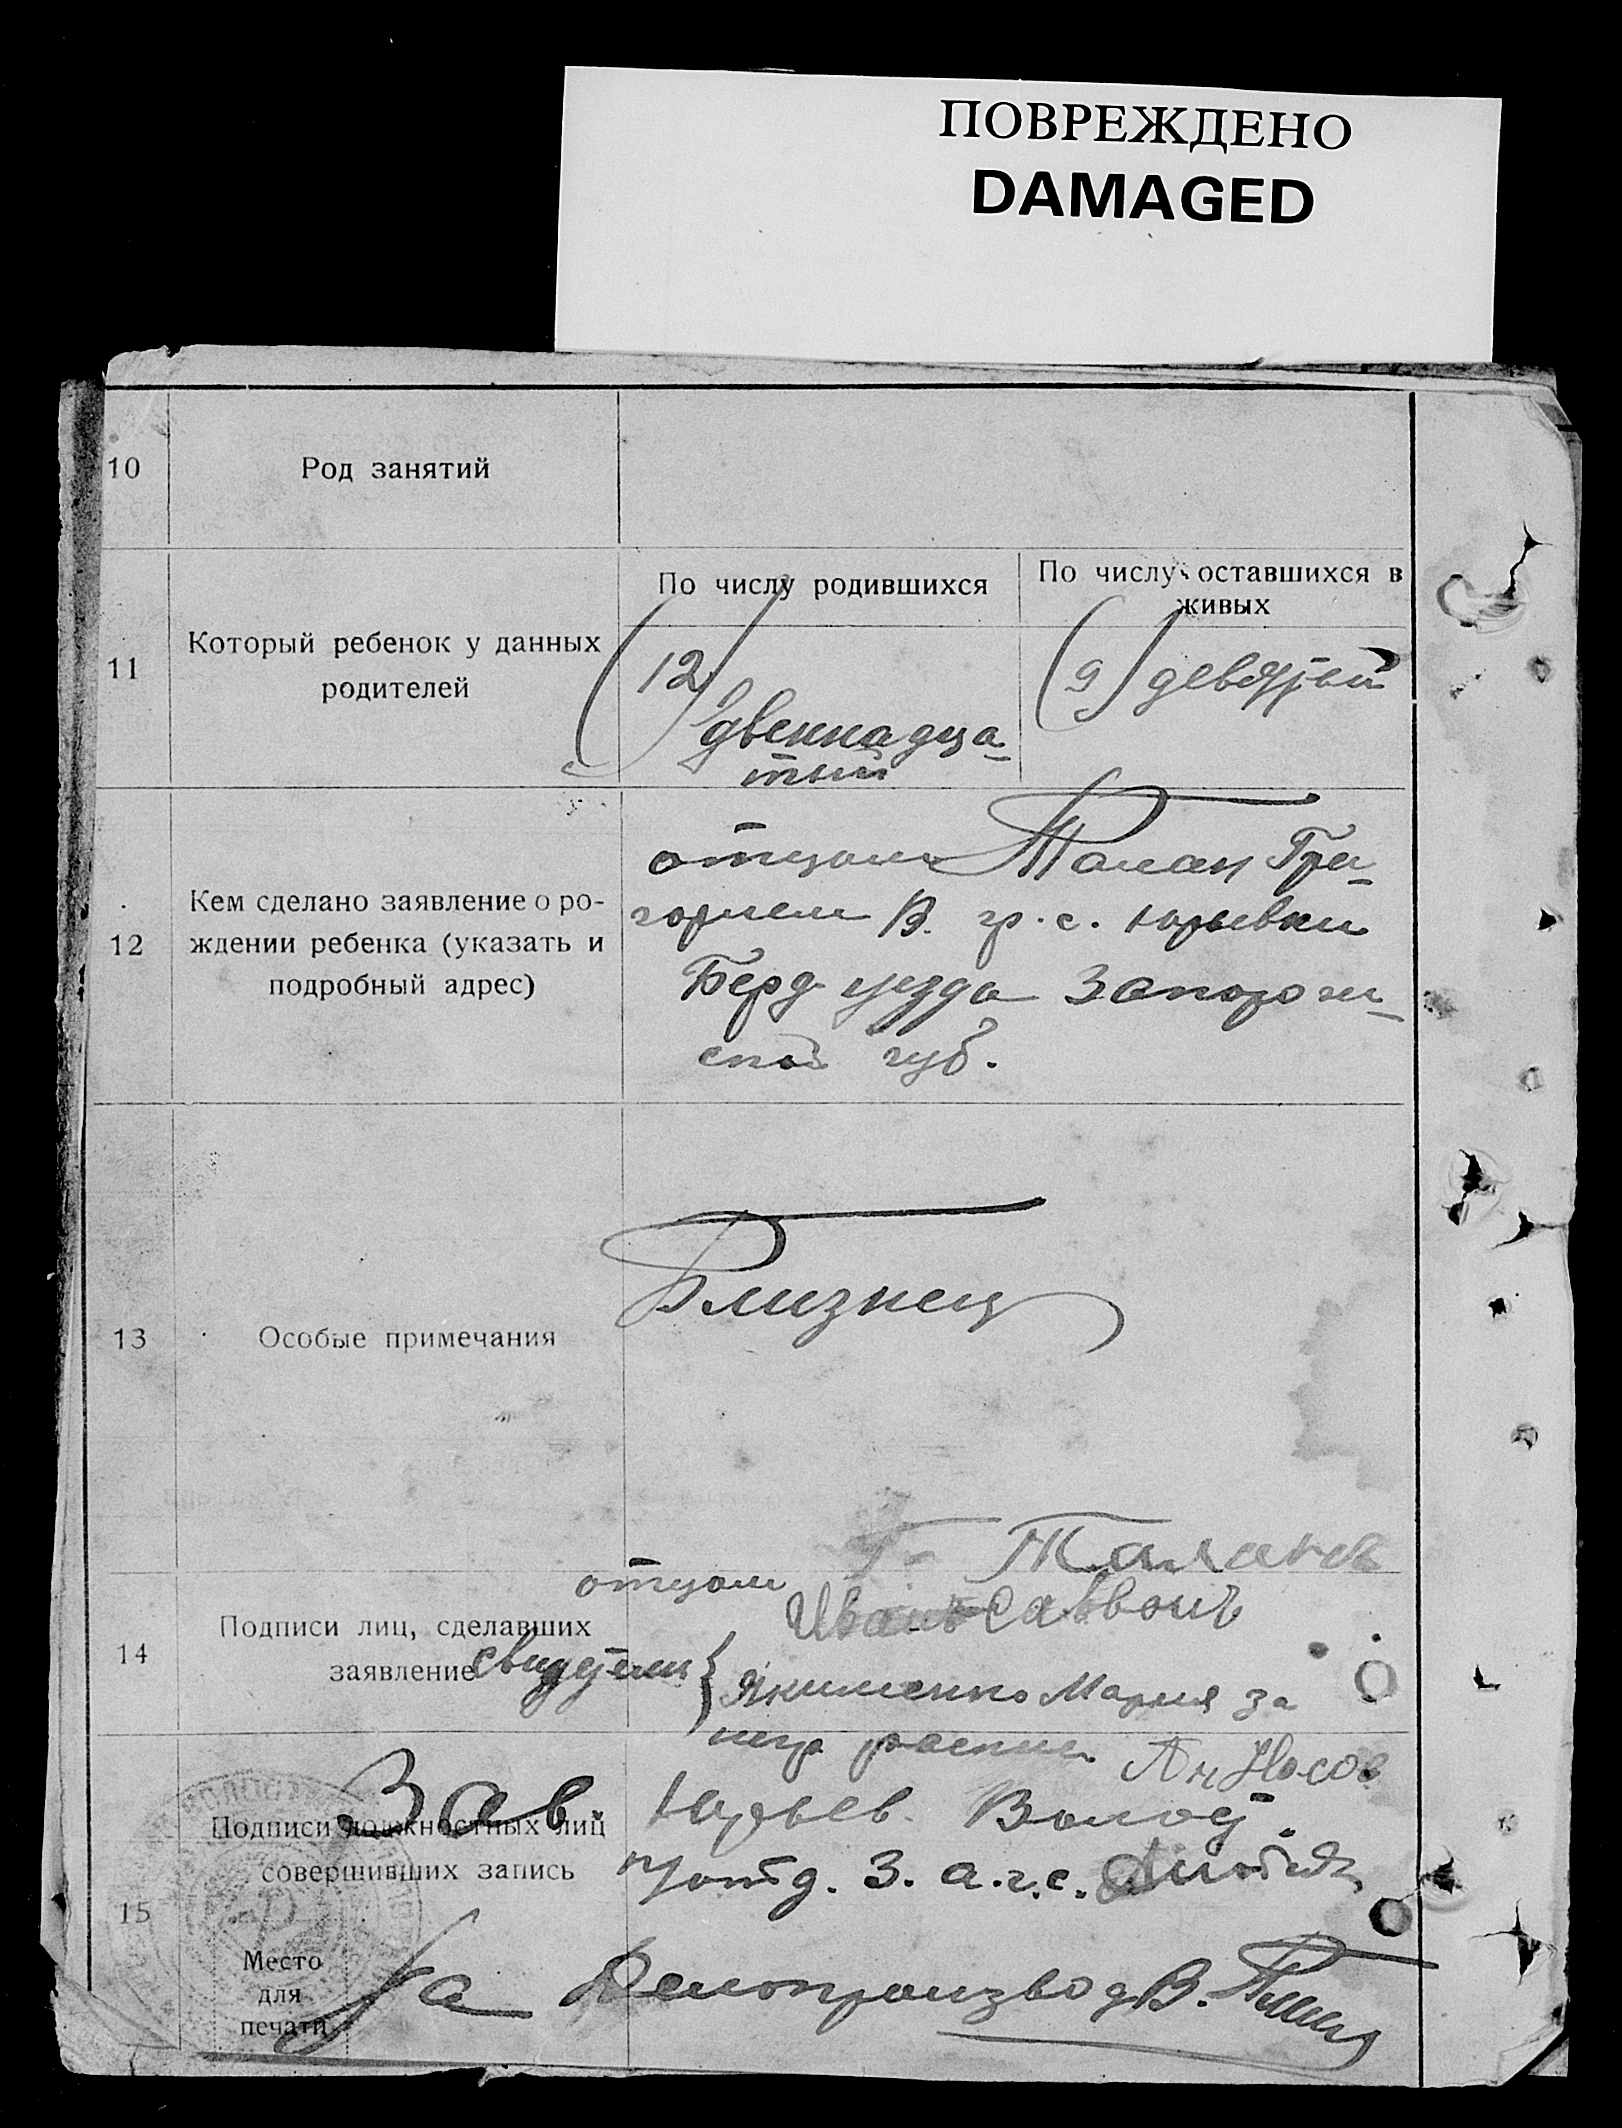 ПОВРЕЖДЕНО
DAMAGED
10
Род занятий
11
Который ребенок у данных
родителей
По числу родившихся
(12)
двеннадца-
тый
По числу оставшихся в
живых
(9) девятый
12
Кем сделано заявление о ро-
ждении ребенка (указать и
подробный адрес)
отцом Талан Гри-
горием В. гр. с. Юрьевки
Берд уезда Запорож-
ской губ.
13
Особые примечания
Близнец
14
Подписи лиц, сделавших
заявление
отцом Г. Талан
Иван Саввон
свидетели { Якименко Мария за
негр роспис Ан Носов
15
Подписи должностных лиц
совершивших запись
Зав Юрьев. Волос.
отд. З. а.г.с.
Место
для
печати
За Делопроизвод В.